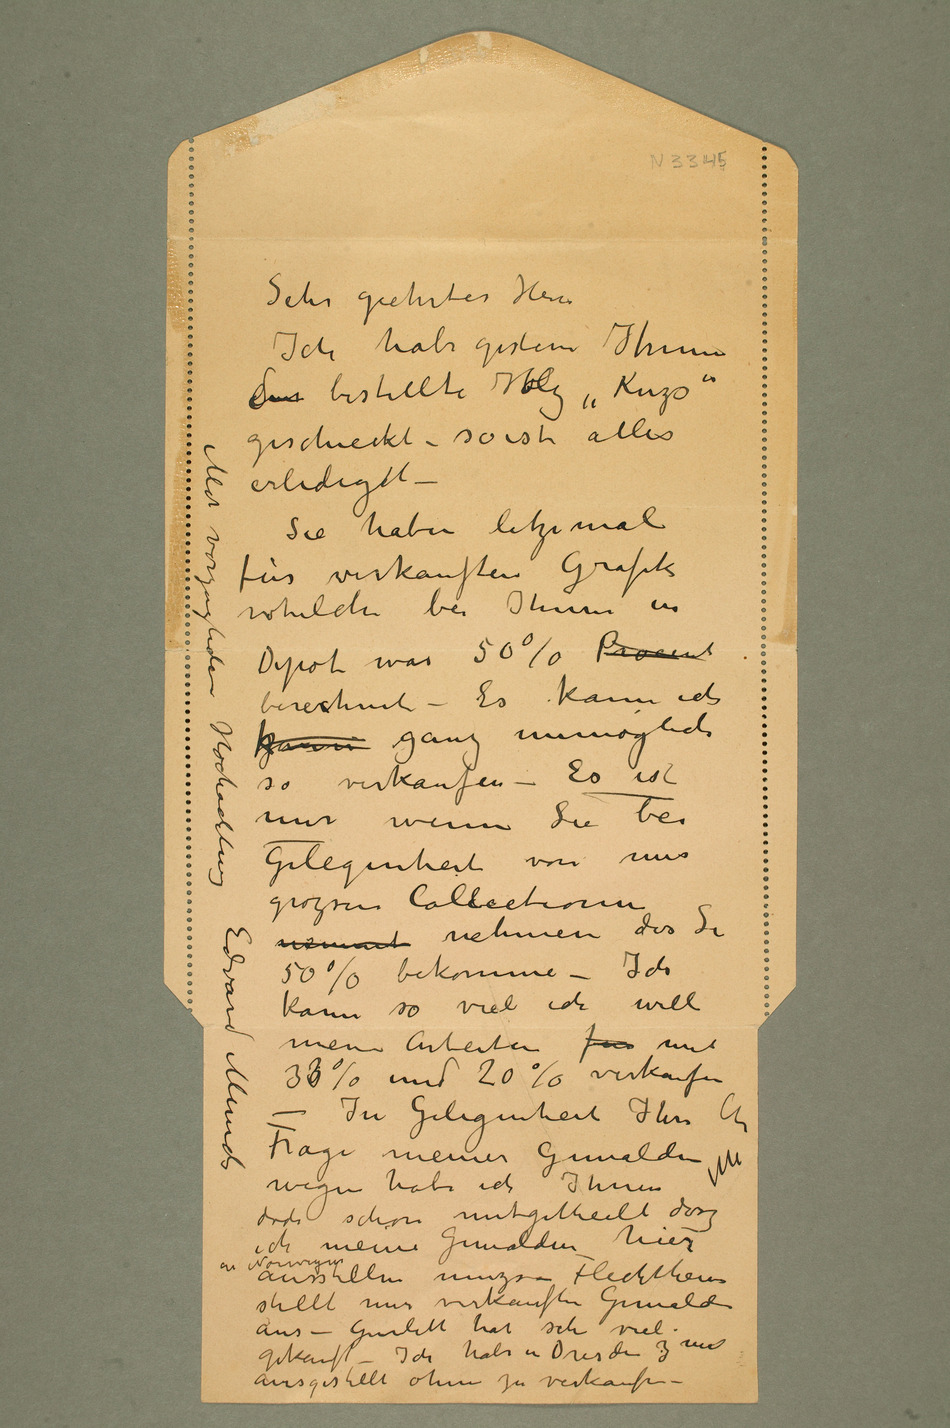 N 3345
Sehr geehrter Herr
Ich habe gestern Ihnen
den bestellte Holz „Kuzs“
geschieckt – so ist alles
erledigt –
Sie haben letzmal
für verkauften Grafik
welche bei Ihnen in
Depot war 50% Procent
berechnet – Es kann ich
kann ganz unmöglich
so verkaufen – Es ist
nur wenn Sie bei
Gelegenheit von mir
grozsen Collectionen
nehmen das Sie
50% bekomme – Ich
kann so viel ich will
meine Arbeiten für mit
33% und 20% verkaufen
– In Gelegenheit Ihre
Frage meiner Gemälden
wegen habe ich Ihnen
doch schon mitgetheilt dasz
ich meine Gemälden hier
in Norwegen
ausstellen muzs – Flechtheim
stellt nur verkaufte Gemälde
aus – Gurlitt hat sehr viel
gekauft – Ich habe in Dresden z nur
ausgestellt ohne zu verkaufen –
Mit vorzüglichen Hochachtung
Edvard Munch